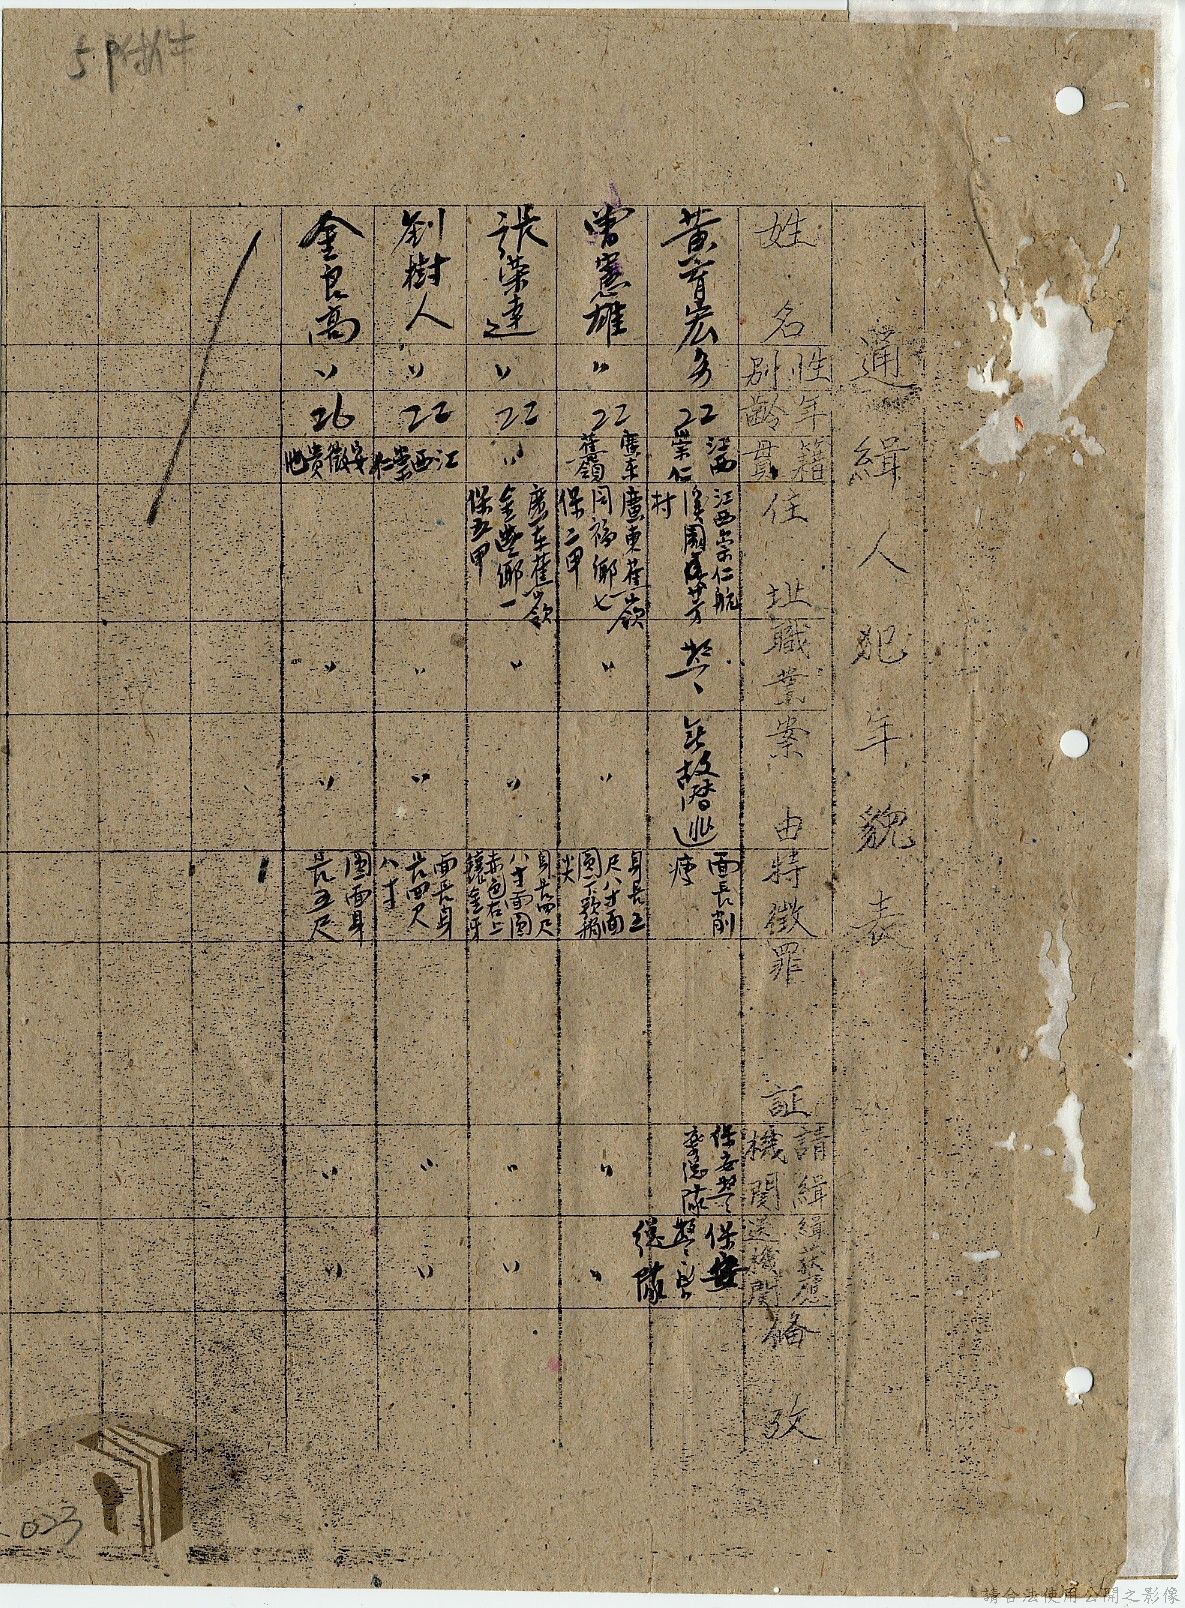 5 P附件
通緝人犯年貌表
姓名
性別
年齡
籍貫
住址
職業
案由
特徵
罪証
請緝機關
緝获應送機關
備攷
黃宏
男
22
江西崇仁
江西崇仁航
村
警
無故潛逃
面長削瘦
保安警察總隊
保安警察總隊
曾憲雄
〃
22
廣東蕉嶺
廣東蕉嶺同福鄉七保二甲
〃
〃
身長五尺八寸面圓下顎稍尖
〃
〃
張荣達
〃
22
〃
廣東蕉嶺金豐鄉一保五甲
〃
〃
身長四尺八寸面圓赤色右上鑲金牙
〃
〃
劉樹人
〃
22
江西崇仁
〃
〃
面長身長四尺八寸
〃
〃
金良高
〃
26
安徽贵池
〃
〃
圓面身長五尺
〃
〃
023
請合法使用公開之影像